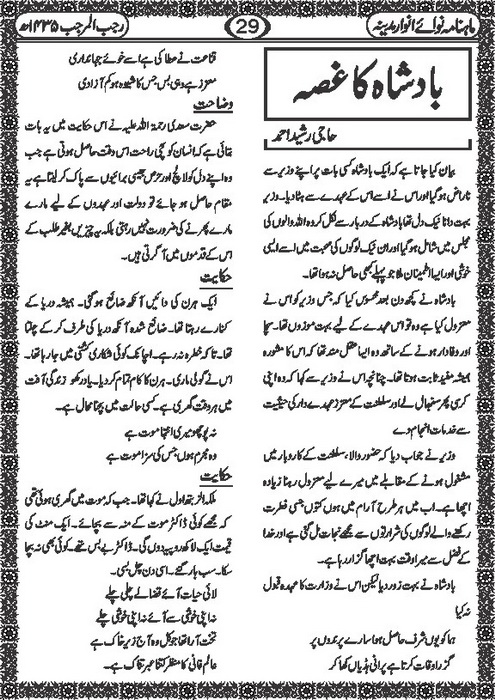 ماہنامہ نوائے انوار مدینہ
29
رجب المرجب ۱۴۳۵ھ
بادشاہ کا غصہ
حاجی رشید احمد
بیان کیا جاتا ہے کہ ایک بادشاہ کسی بات پر اپنے وزیر سے
ناراض ہو گیا اور اس نے اسے اس کے عہدے سے ہٹا دیا۔ وزیر
بہت دانا نیک دل تھا بادشاہ کے دربار سے نکل کر وہ اللہ والوں کی
مجلس میں شامل ہو گیا اور ان نیک لوگوں کی صحبت میں اسے ایسی
خوشی اور ایسا اطمینان ملا جو پہلے کبھی حاصل نہ ہوا تھا۔
بادشاہ نے کچھ دن بعد محسوس کیا کہ جس وزیر کو اس نے
معزول کیا ہے وہ تو اس عہدے کے لیے بہت موزوں تھا۔ سچا
اور وفادار ہونے کے ساتھ وہ ایسا عقل مند تھا کہ اس کا مشورہ
ہمیشہ مفید ثابت ہوتا تھا۔ چنانچہ اس نے وزیر سے کہا کہ وہ اپنی
کرسی پھر سنبھال لے اور سلطنت کے معزز عہدے دار کی حیثیت
سے خدمات انجام دے
وزیر نے جواب دیا کہ حضور والا، سلطنت کے کاروبار میں
مشغول ہونے کے مقابلے میں میرے لیے معزول رہنا زیادہ
اچھا ہے۔ اب میں ہر طرح آرام میں ہوں کتوں جسی فطرت
رکھنے والے لوگوں کی شرارتوں سے مجھے نجات مل گئی ہے اور خدا
کے فضل سے میرا وقت بہت اچھا گزار رہا ہے۔
بادشاہ نے بہت زور دیا لیکن اس نے وزارت کا عہدہ قبول
نہ کیا
ہما کو یوں شرف حاصل ہوا سارے پرندوں پر
گزر اوقات کرتا ہے پرانی ہڈیاں کھا کر
قناعت نے عطا کی ہے اسے خوئے جہانداری
معزز ہے وہی بس جس کا شیوہ ہو کم آزادی
وضاحت
حضرت سعدی رحمۃ اللہ علیہ نے اس حکایت میں یہ بات
بتائی ہے کہ انسان کو سچی راحت اس وقت حاصل ہوتی ہے جب
وہ اپنے دل کو لالچ اور حرص جیسی برائیوں سے پاک کر لیتا ہے یہ
مقام حاصل ہو جائے تو دولت اور عہدوں کے لیے مارے
مارے پھرنے کی ضرورت نہیں رہتی بلکہ یہ چیزیں بغیر طلب کے
اس کے قدموں میں آ گرتی ہیں۔
حکایت
ایک ہرن کی دائیں آنکھ ضائع ہوگئی۔ ہمیشہ دریا کے
کنارے رہتا تھا۔ ضائع شدہ آنکھ دریا کی طرف کر کے چلتا
تھا۔ تاکہ خطرہ نہ رہے۔ اچانک کوئی شکاری کشتی میں جا رہا تھا۔
اس نے گولی ماری۔ ہرن کا کام تمام کر دیا۔ یاد رکھو زندگی آفت
میں ہر وقت گھری ہے۔ کسی حالت میں بچنا محال ہے۔
نہ پوچھو میری انتہا موت ہے
وہ مجرم ہوں جس کی سزا موت ہے
حکایت
ملکہ الزبتھ اول نے کہا تھا۔ جب کہ موت میں گھری ہوئی تھی
کہ مجھے کوئی ڈاکٹر موت کے منہ سے بچائے۔ ایک منٹ کی
قیمت ایک لاکھ روپیہ دوں گی۔ ڈاکٹر بے بس تھے کوئی بھی نہ بچا
سکا۔ سب ہار گئے۔ اسی دن چل بسی۔
لائی حیات آئے قضا لے چلی چلے
نہ اپنی خوشی سے آئے نہ اپنی خوشی چلے
تخت آرا تھا جو کل وہ آج زیر خاک ہے
عالم فانی کا منظر کتنا عبرتناک ہے۔